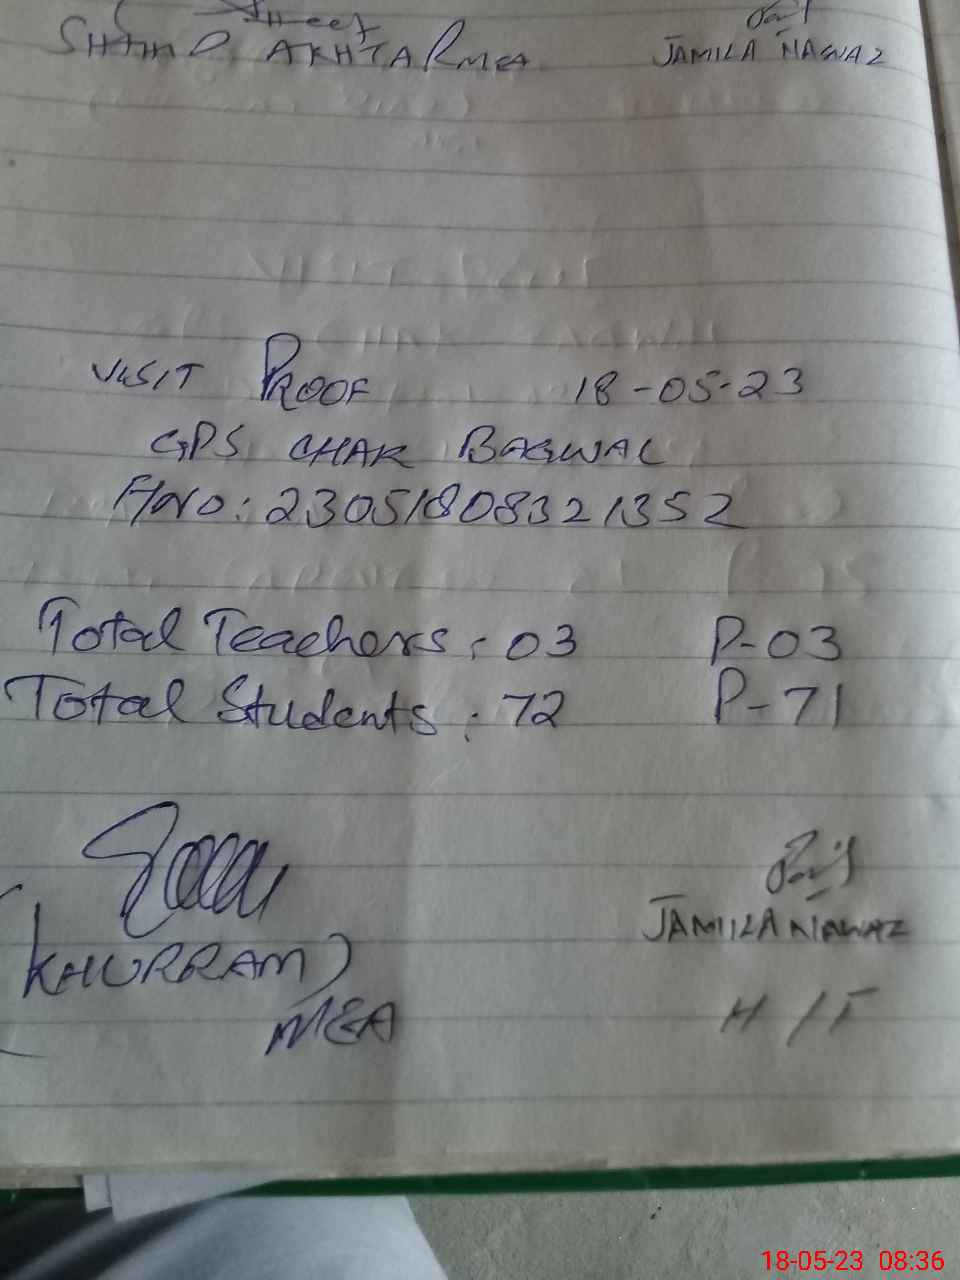 SHAHID AKHTAR MEA JAMILA NAWAZ
VISIT PROOF 18-05-23
GPS CHAK BAGWAL
A/NO: 2305180832 1352
Total Teachers: 03 P-03
Total Students: 72 P-71
(KHURRAM)
MEA
JAMILA NAWAZ
H/T
18-05-23 08:36